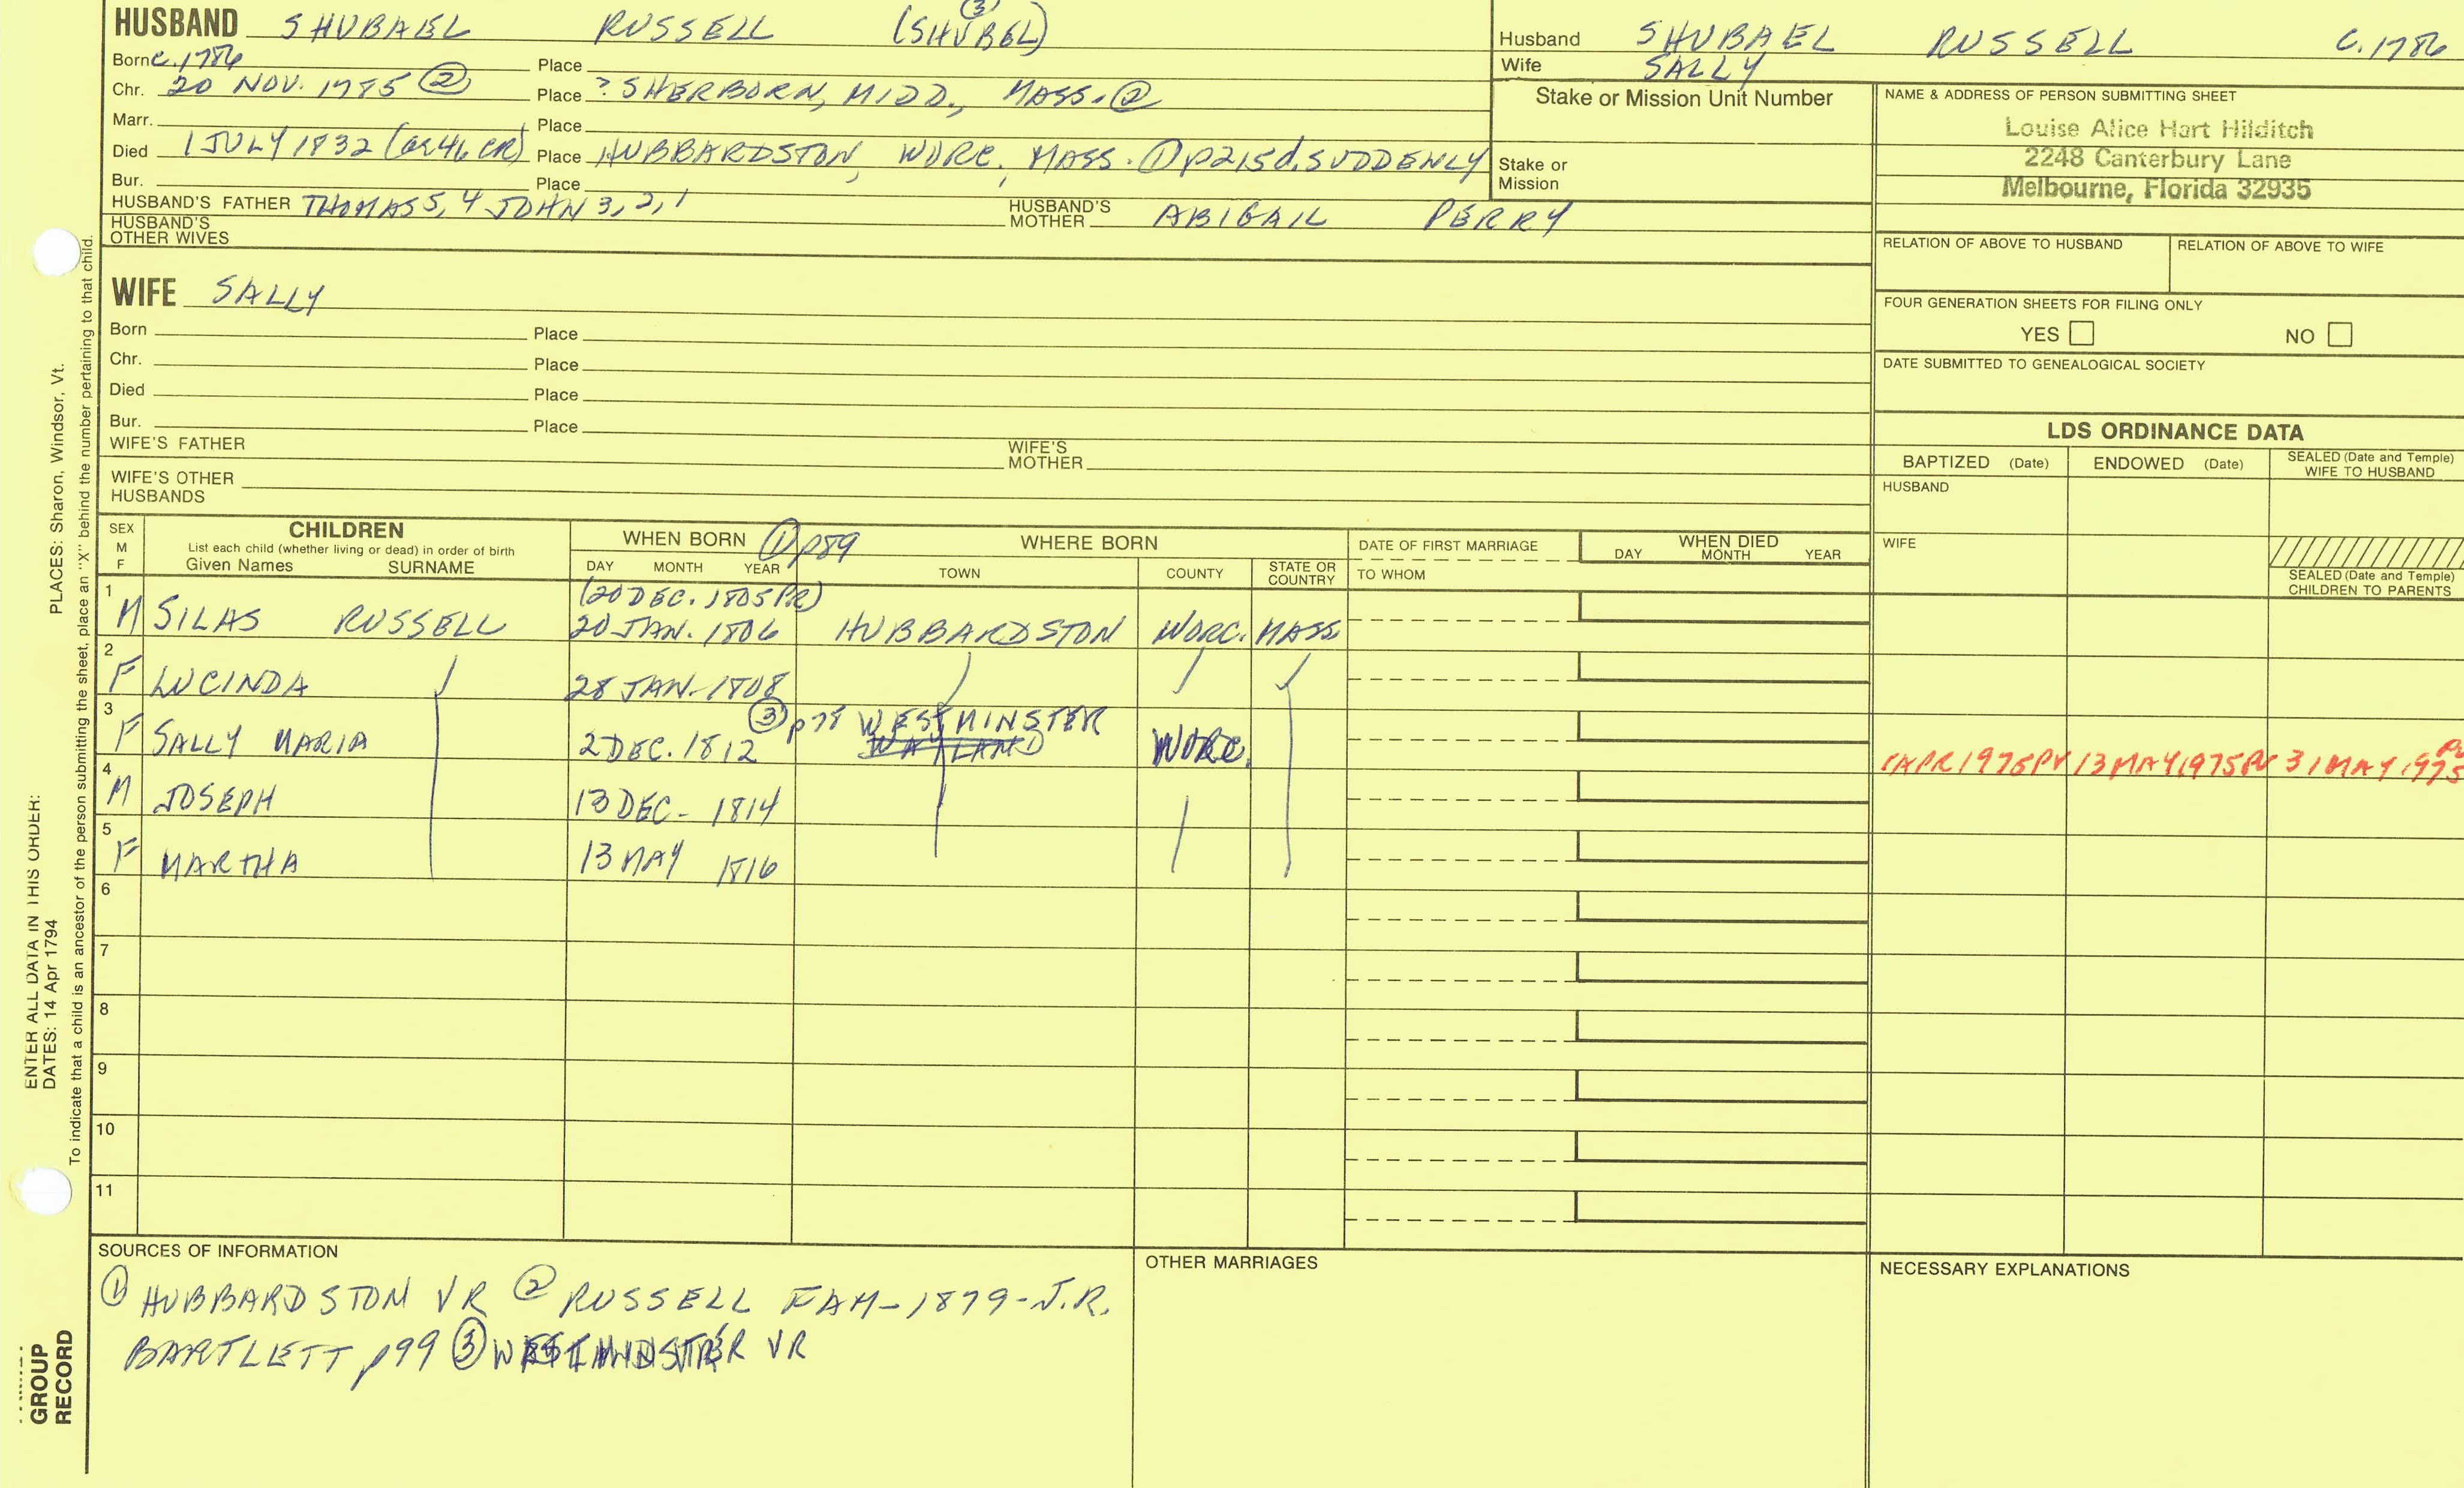 HUSBAND SHUBAEL RUSSELL (SHUBEL) ③
Born c.1786 Place
Chr. 20 NOV. 1785 ② Place ? SHERBORN, MIDD., MASS. ②
Marr. Place
Died 1 JULY 1832 (ae 46 CR) Place HUBBARDSTON, WORC., MASS. ① p215 d. SUDDENLY
Bur. Place
HUSBAND'S FATHER THOMAS 5, 4 JOHN 3, 2, 1 HUSBAND'S MOTHER ABIGAIL PERRY
HUSBAND'S OTHER WIVES
Husband SHUBAEL RUSSELL C. 1786
Wife SALLY
Stake or Mission Unit Number
Stake or Mission
NAME & ADDRESS OF PERSON SUBMITTING SHEET
Louise Alice Hart Hilditch
2248 Canterbury Lane
Melbourne, Florida 32935
RELATION OF ABOVE TO HUSBAND RELATION OF ABOVE TO WIFE
FOUR GENERATION SHEETS FOR FILING ONLY
YES NO
DATE SUBMITTED TO GENEALOGICAL SOCIETY
WIFE SALLY
Born Place
Chr. Place
Died Place
Bur. Place
WIFE'S FATHER WIFE'S MOTHER
WIFE'S OTHER HUSBANDS
LDS ORDINANCE DATA
BAPTIZED (Date) ENDOWED (Date) SEALED (Date and Temple) WIFE TO HUSBAND
HUSBAND
WIFE
SEALED (Date and Temple) CHILDREN TO PARENTS
SEX M F
CHILDREN
List each child (whether living or dead) in order of birth
Given Names SURNAME
WHEN BORN ① p89
DAY MONTH YEAR
WHERE BORN
TOWN COUNTY STATE OR COUNTRY
DATE OF FIRST MARRIAGE
TO WHOM
WHEN DIED
DAY MONTH YEAR
(20 DEC. 1805 PR)
1 M SILAS RUSSELL 20 JAN. 1806 HUBBARDSTON WORC. MASS
2 F LUCINDA 28 JAN. 1808
③ p78 WESTMINSTER
3 F SALLY MARIA 2 DEC. 1812 WAYLAND WORC.
1975PV 13 MAY 1975PV 31 MAY 1975 PV
4 M JOSEPH 13 DEC- 1814
5 F MARTHA 13 MAY 1816
6
7
8
9
10
11
SOURCES OF INFORMATION
① HUBBARDSTON VR ② RUSSELL FAM-1879-J.R.
BARTLETT p99 ③ WESTMINSTER VR
OTHER MARRIAGES
NECESSARY EXPLANATIONS
PLACES: Sharon, Windsor, Vt.
ENTER ALL DATA IN THIS ORDER:
DATES: 14 Apr 1794
To indicate that a child is an ancestor of the person submitting the sheet, place an "X" behind the number pertaining to that child.
GROUP
RECORD